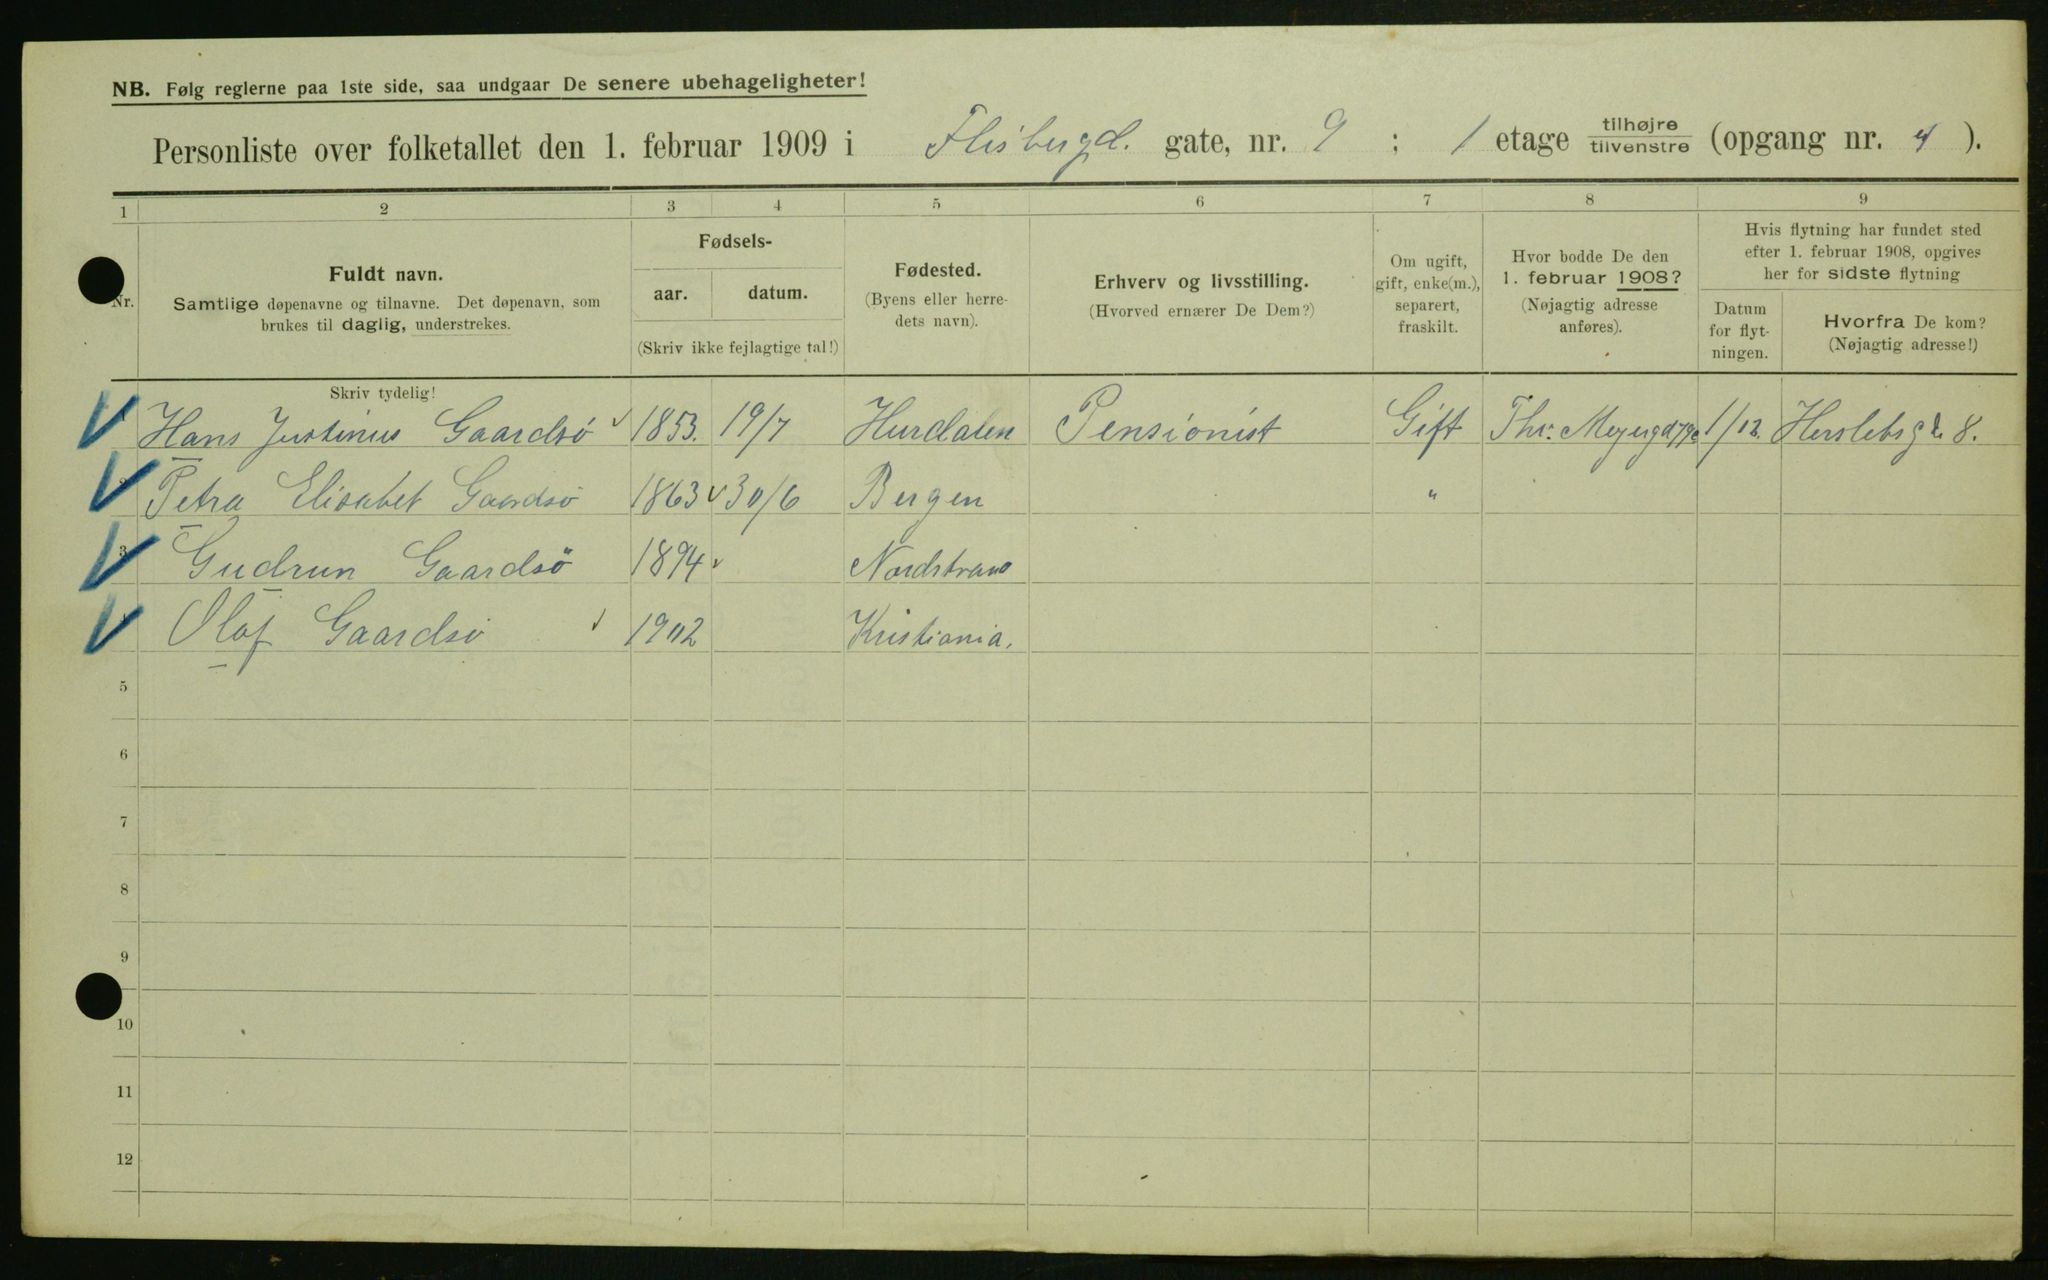 NB. Følg reglerne paa 1ste side, saa undgaar De senere ubehageligheter!
Personliste over folketallet den 1. februar 1909 i Flisbergd. gate, nr. 9 ; 1 etage tilhøjre/tilvenstre (opgang nr. 4 ).
1 2 3 4 5 6 7 8 9
Nr.
Fuldt navn.
Samtlige døpenavne og tilnavne. Det døpenavn, som
brukes til daglig, understrekes.
Fødsels-
aar. datum.
(Skriv ikke fejlagtige tal!)
Fødested.
(Byens eller herre-
dets navn).
Erhverv og livsstilling.
(Hvorved ernærer De Dem?)
Om ugift,
gift, enke(m.),
separert,
fraskilt.
Hvor bodde De den
1. februar 1908?
(Nøjagtig adresse
anføres).
Hvis flytning har fundet sted
efter 1. februar 1908, opgives
her for sidste flytning
Datum
for flyt-
ningen.
Hvorfra De kom?
(Nøjagtig adresse!)
Skriv tydelig!
1 Hans Justinus Gaardsø 1853. 19/7 Hurdalen Pensionist Gift Thv. Meyergd 1/12. Herslebsgd. 8.
2 Petra Elisabet Gaardsø 1863 30/6 Bergen "
3 Gudrun Gaardsö 1894 Nordstrand
4 Olaf Gaardsø 1902 Kristiania.
5
6
7
8
9
10
11
12